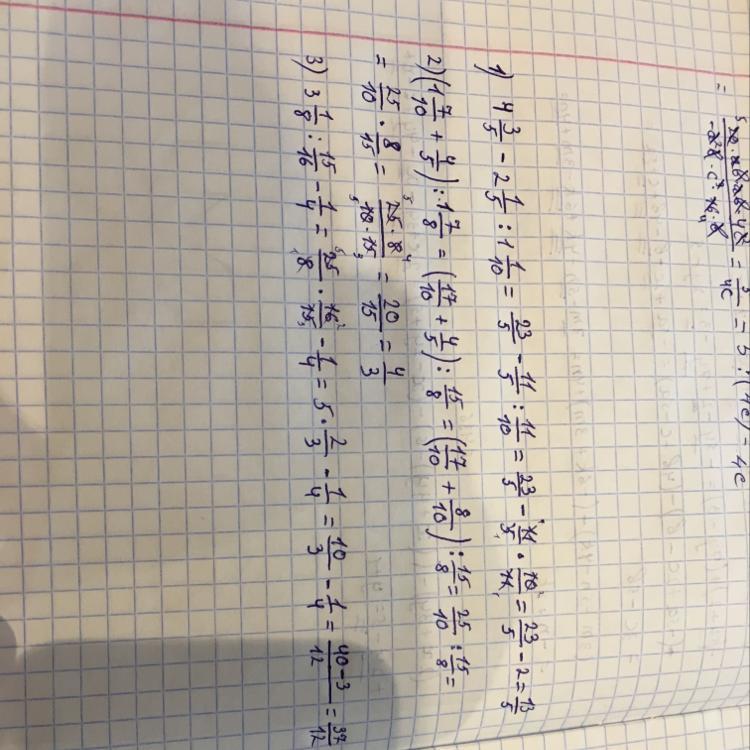 = 5 / 4c = 5 : (4c) = 4c
1) 4 3/5 - 2 1/5 : 1 1/10 = 23/5 - 11/5 : 11/10 = 23/5 - 11/5 · 10/11 = 23/5 - 2 = 13/5
2) (1 7/10 + 4/5) : 1 7/8 = (17/10 + 4/5) : 15/8 = (17/10 + 8/10) : 15/8 = 25/10 : 15/8 =
= 25/10 · 8/15 = 25·8/10·15 = 20/15 = 4/3
3) 3 1/8 : 15/16 - 1/4 = 25/8 · 16/15 - 1/4 = 5 · 2/3 - 1/4 = 10/3 - 1/4 = 40-3/12 = 37/12